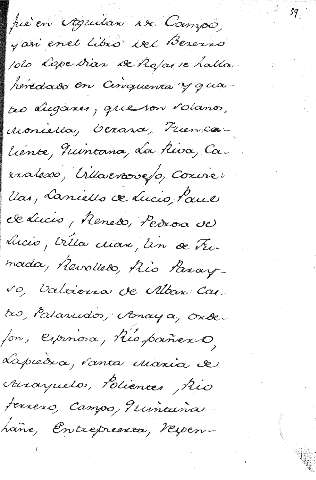 59
fué en Aguilar de Campo,
y asi en el libro del Becerro
solo Lope Diaz de Rojas se halla
heredado en cinquenta y qua-
tro Lugares, que son Solanos,
Moniella, Fuenca-
liente, Quintana, La Riva, Ca-
Villaescovejo, Corvie-
llas, Laniello de Lucio, Paul
de Lucio, Renedo, Pedrosa de
Lucio, Villa Mar, Un de Fu-
mada, Revolledo, Rio Paray-
so, Valcierra de Albar Cas-
tro, Palazuelos, Amaya, Orde-
jon, Espinosa, Rio pañero,
La piedra, Santa Maria de
Poblentes, Rio
ferrero, Campo, Quintana
hañe, Entrepuerta, Vespen-